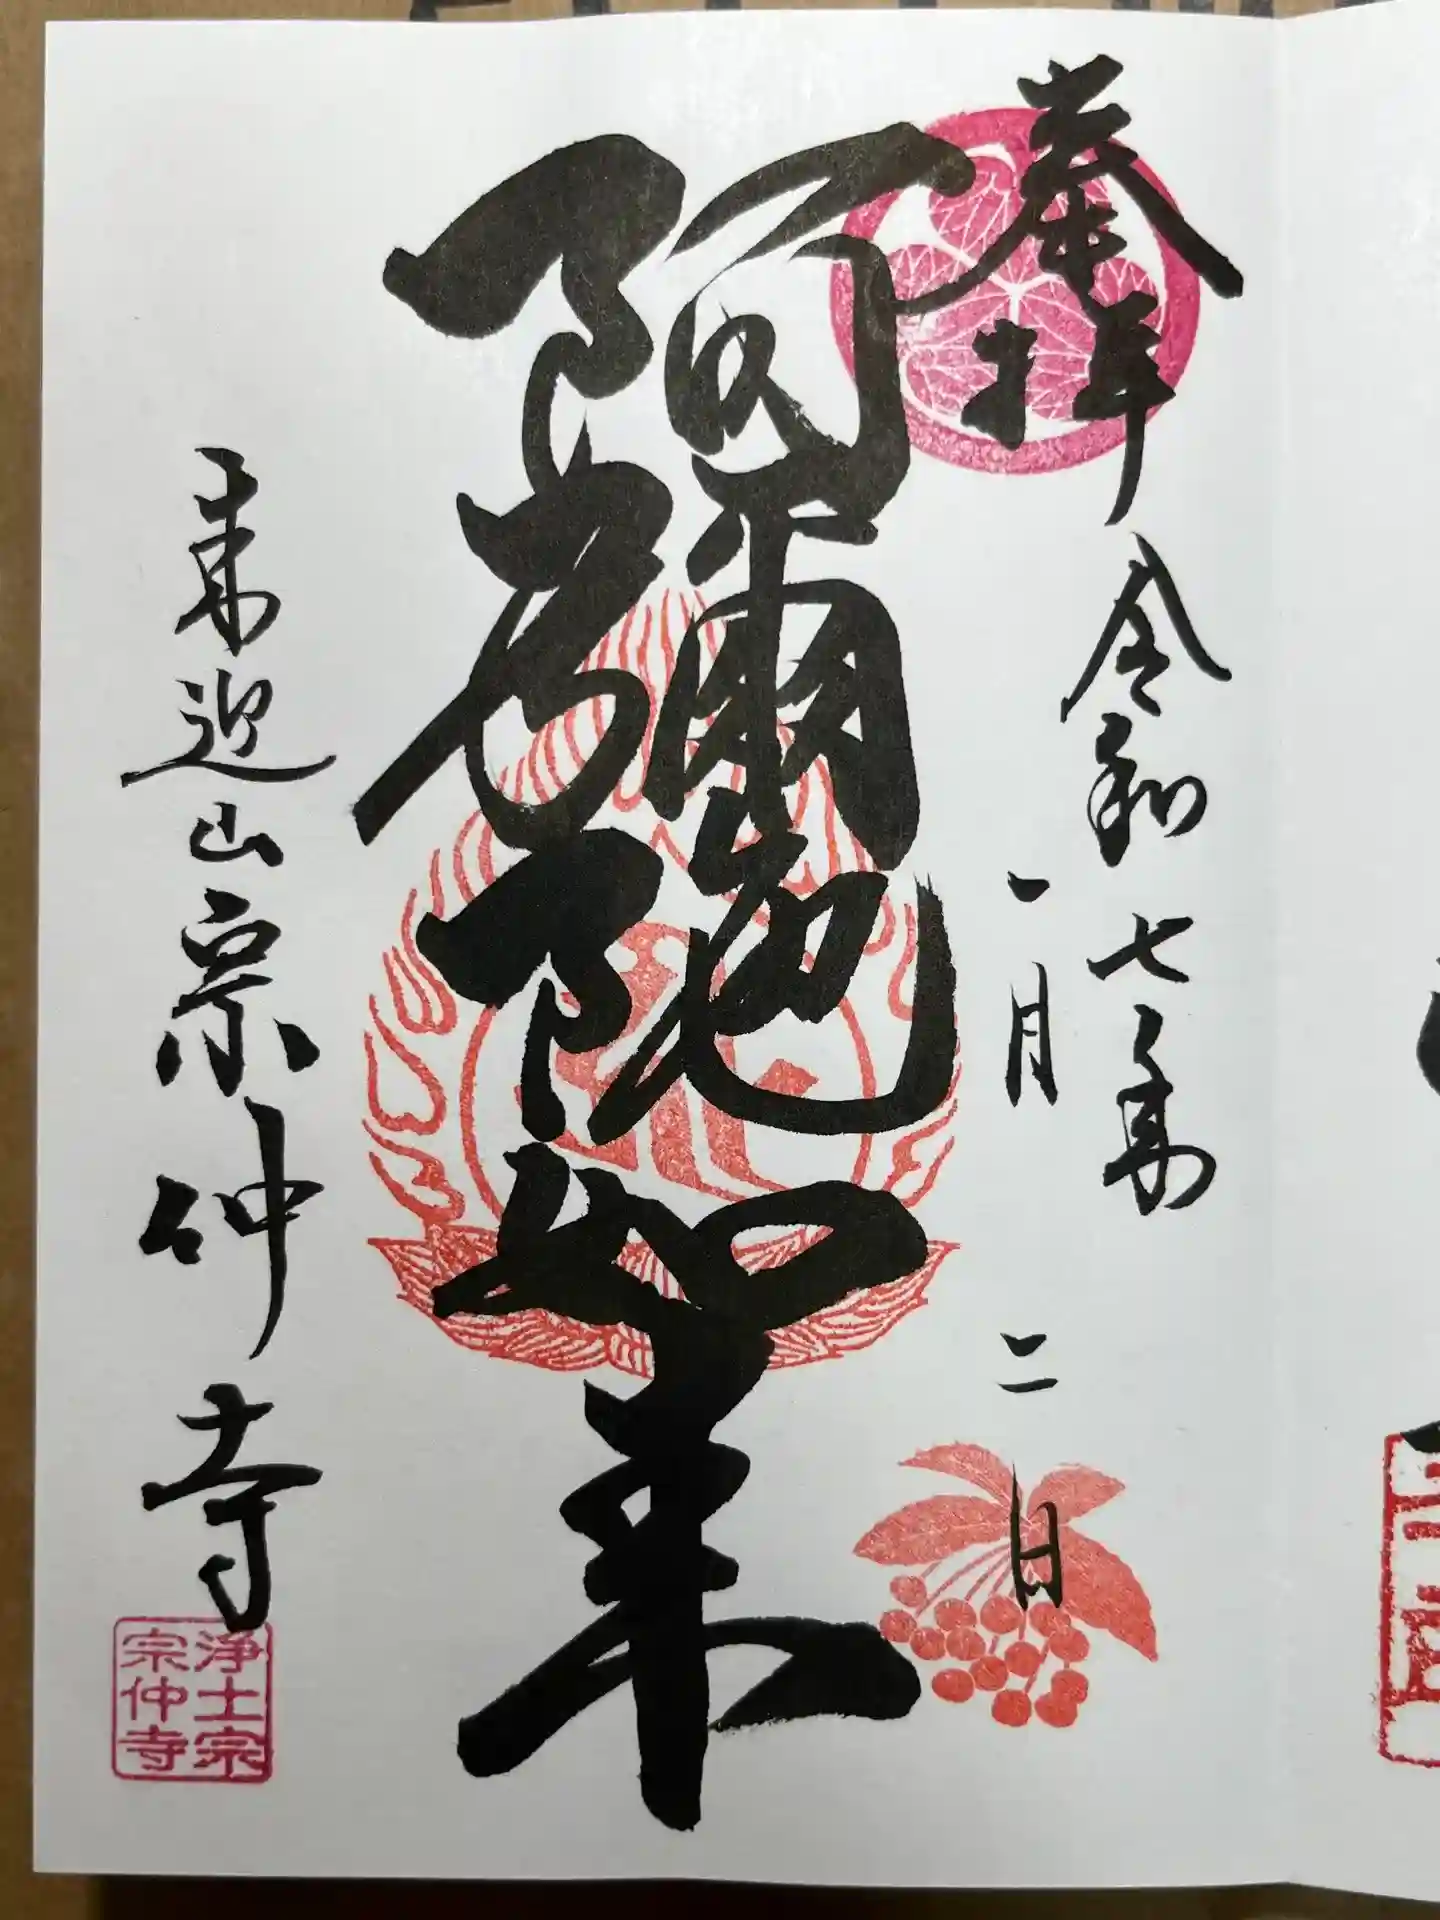 奉拝
令和七年
一月二日
阿彌陀如来
来迎山宗仲寺
浄土宗
宗仲寺